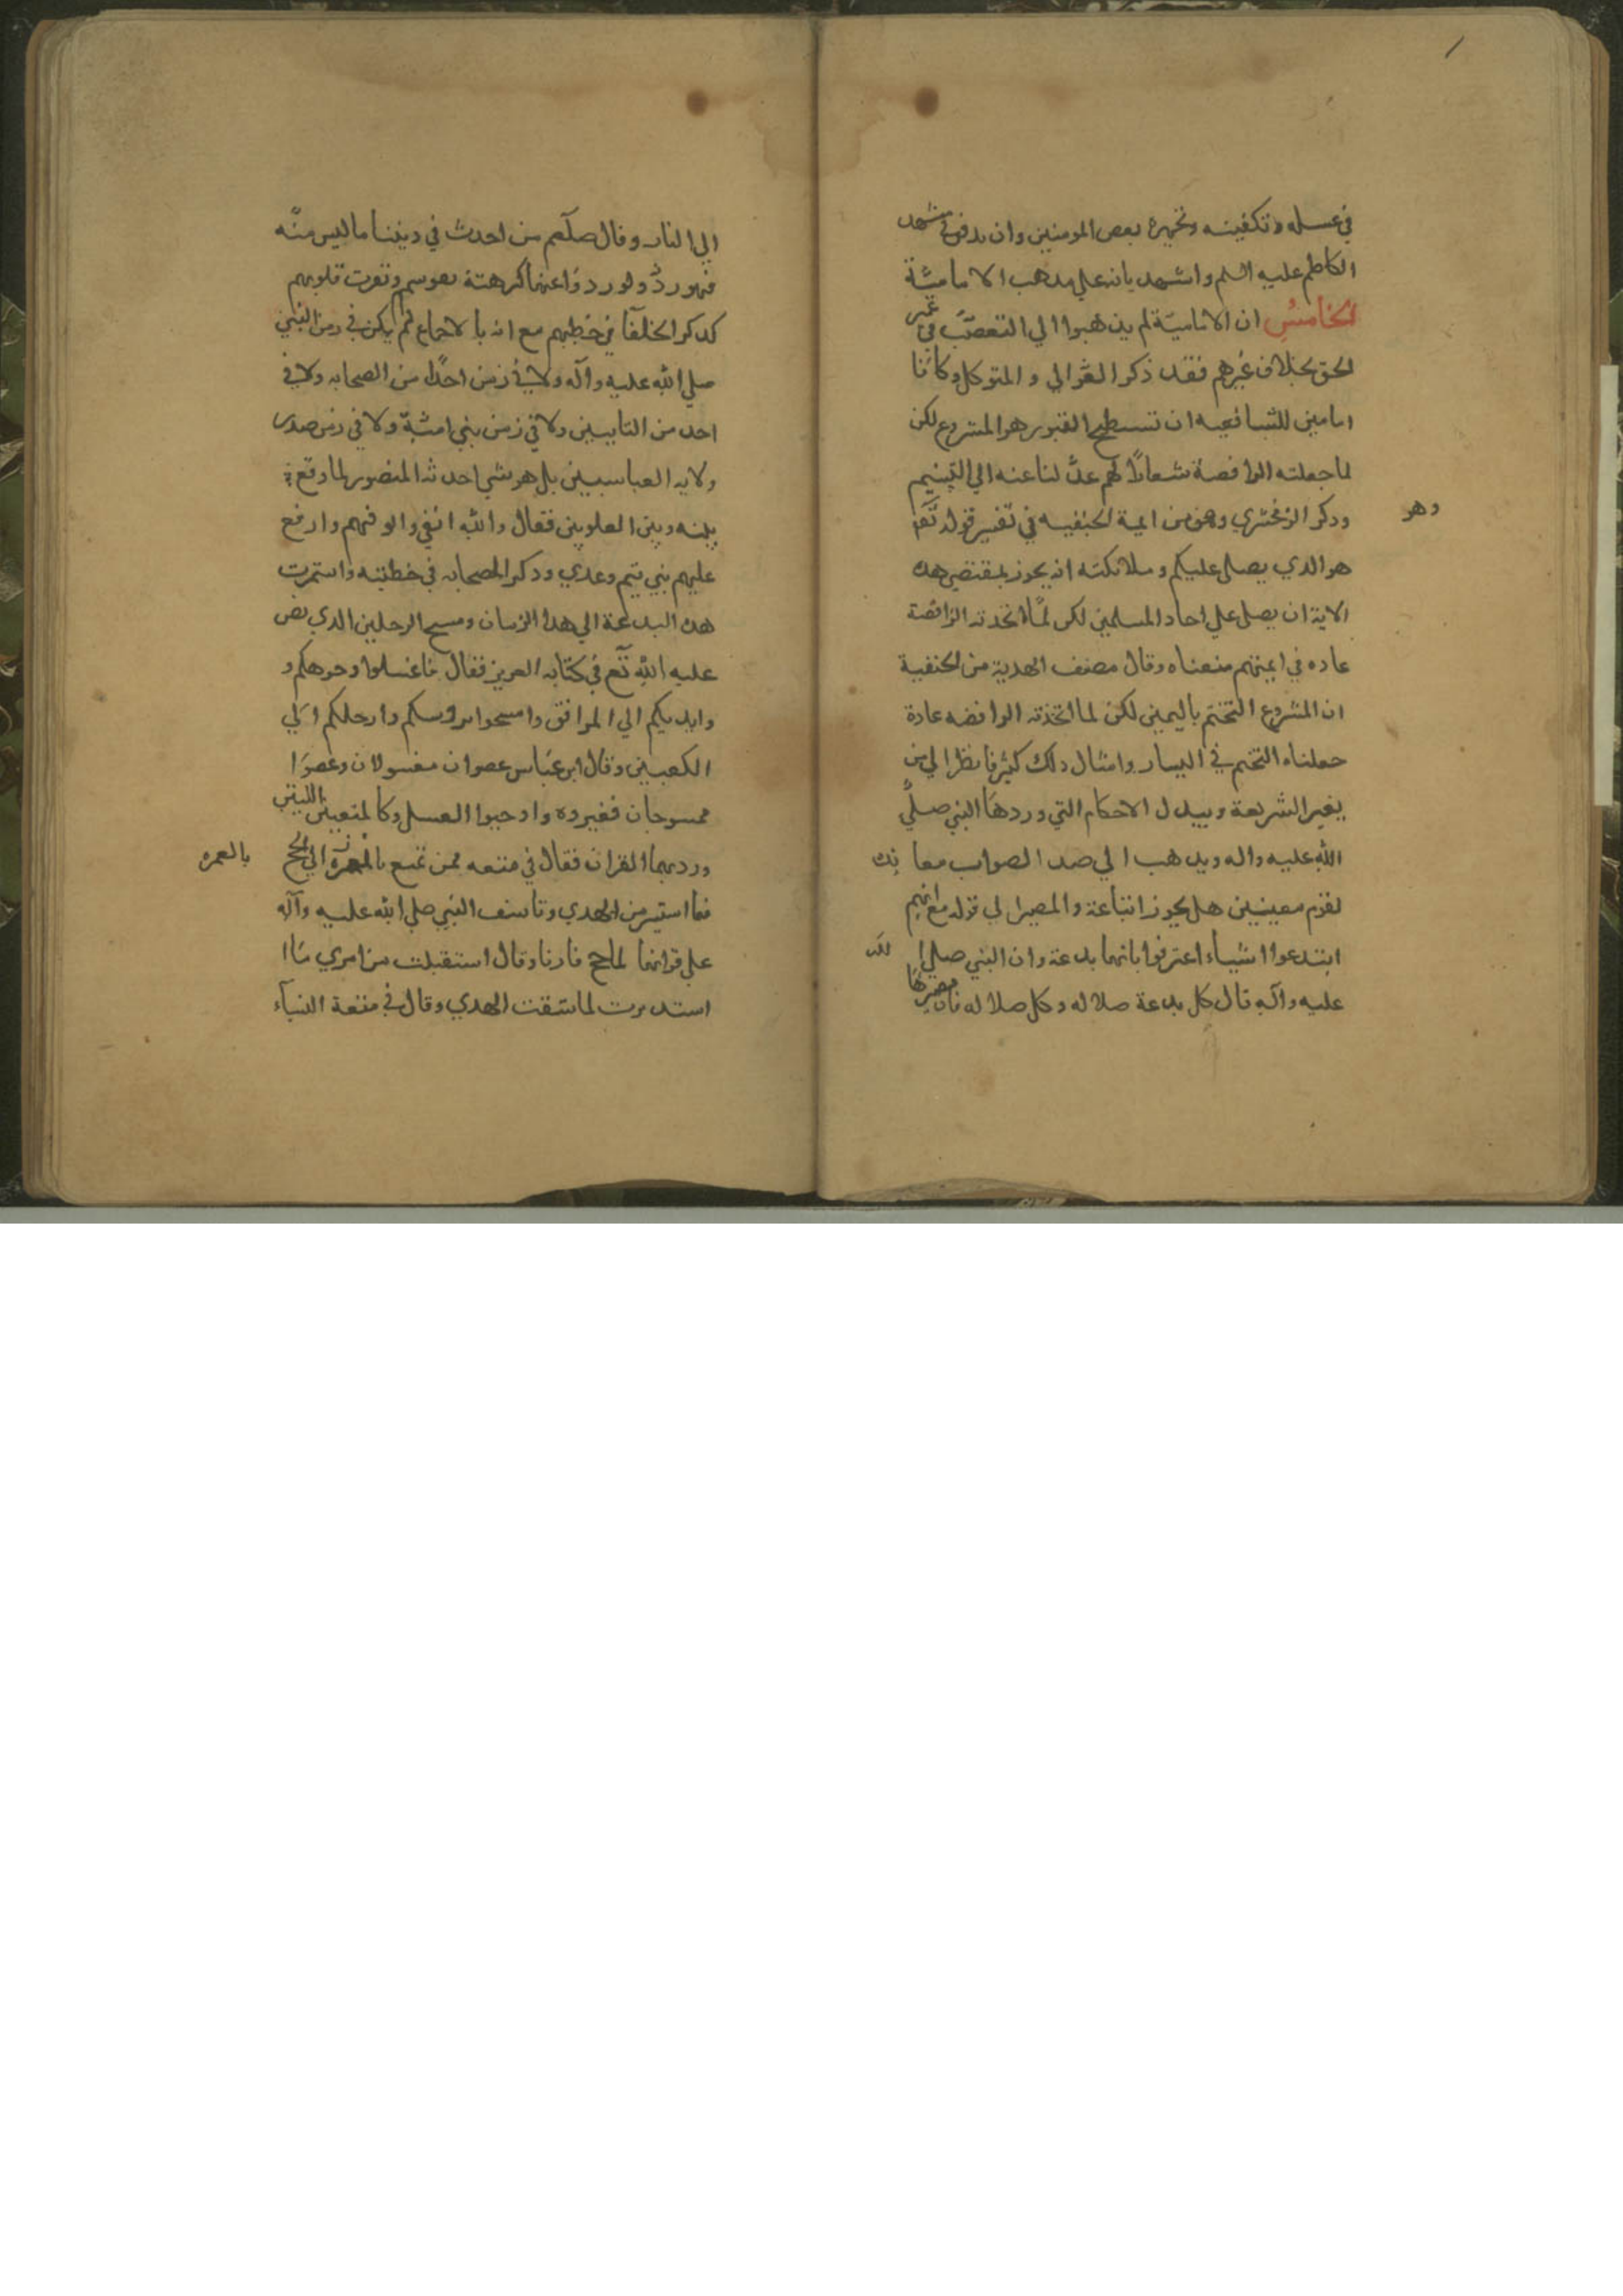 في غسله وتكفينه وتجهيزه بعض المومنين وان يدفن في مشهد
الكاظم عليه السلم واشهد بانه علي مدهب الامامية
الخامس ان الامامية لم يذهبوا الي التعصب في غير
الحق بخلاف غيرهم فقد ذكر الغزالي و المتوكل وكانا
امامين للشافعيه ان تسطيح القبور هو المشروع لكن
لما جعلته الرافضة شعارا لهم عدلنا عنه الي التسنيم
ودكر الزمخشري وهو من ايمة الحنفيه في تفسير قوله تعا
وهو
هو الدي يصلي عليكم وملائكته انه يجوز بمقتضي هده
الاية ان يصلي علي احاد المسلمين لكن لما اتخدته الرافضة
عاده في ايمتهم منعناه وقال مصنف الهدية من الحنفية
ان المشروع التختم باليمين لكن لما اتخذته الرافضه عادة
جعلناه التختم في اليسار وامثال دلك كثير فانظر الي من
يغير الشريعة ويبدل الاحكام التي وردها النبي صلي
الله عليه واله ويدهب الي ضد الصواب معا ندة
لقوم معينين هل يجوز اتباعة والمصير الي قوله مع انهم
ابتدعوا اشياء اعترفوا بانها بدعة وان النبي صلي الله
عليه وآله قال كل بدعة ضلاله وكل ضلاله فان مصيرها
الي النار وقال صلعم من احدث في ديننا ما ليس منه
فهو رد ولو ردوا عنها كرهته نفوسهم ونفرت قلوبهم
كدكر الخلفا في خطبهم مع انه بالاجماع لم يكن في زمن النبي
صلي الله عليه وآله ولا في زمن احد من الصحابه ولا في
احد من التابعين ولا في زمن بني امية ولا في زمن صدر
ولايه العباسيين بل هو شي احدثه المنصور لما وقع
بينه وبين العلويين فقال والله انفي وانوفهم وارفع
عليهم بني تيم وعدي ودكر الصحابه في خطبته واستمرت
هده البدعة الي هدا الزمان ومسح الرجلين الدي نص
عليه الله تع في كتابه العزيز فقال فاغسلوا وجوهكم و
وايديكم الي المرافق وامسحوا بروسكم وارجلكم الي
الكعبين وقال ابن عباس عضوان مغسولان وعضوا
ممسوحان فغيروه واوجبوا الغسل وكالمتعين اللتين
ورد بهما القران فقال في متعه فمن تمتع بالعمرة الي الحج
بالعمره
فما استيسر من الهدي وتاسف النبي صلي الله عليه وآله
علي فواتها لما حج قارنا وقال استقبلت من امري ما ا
استدبرت لما سقت الهدي وقال في متعة النساء